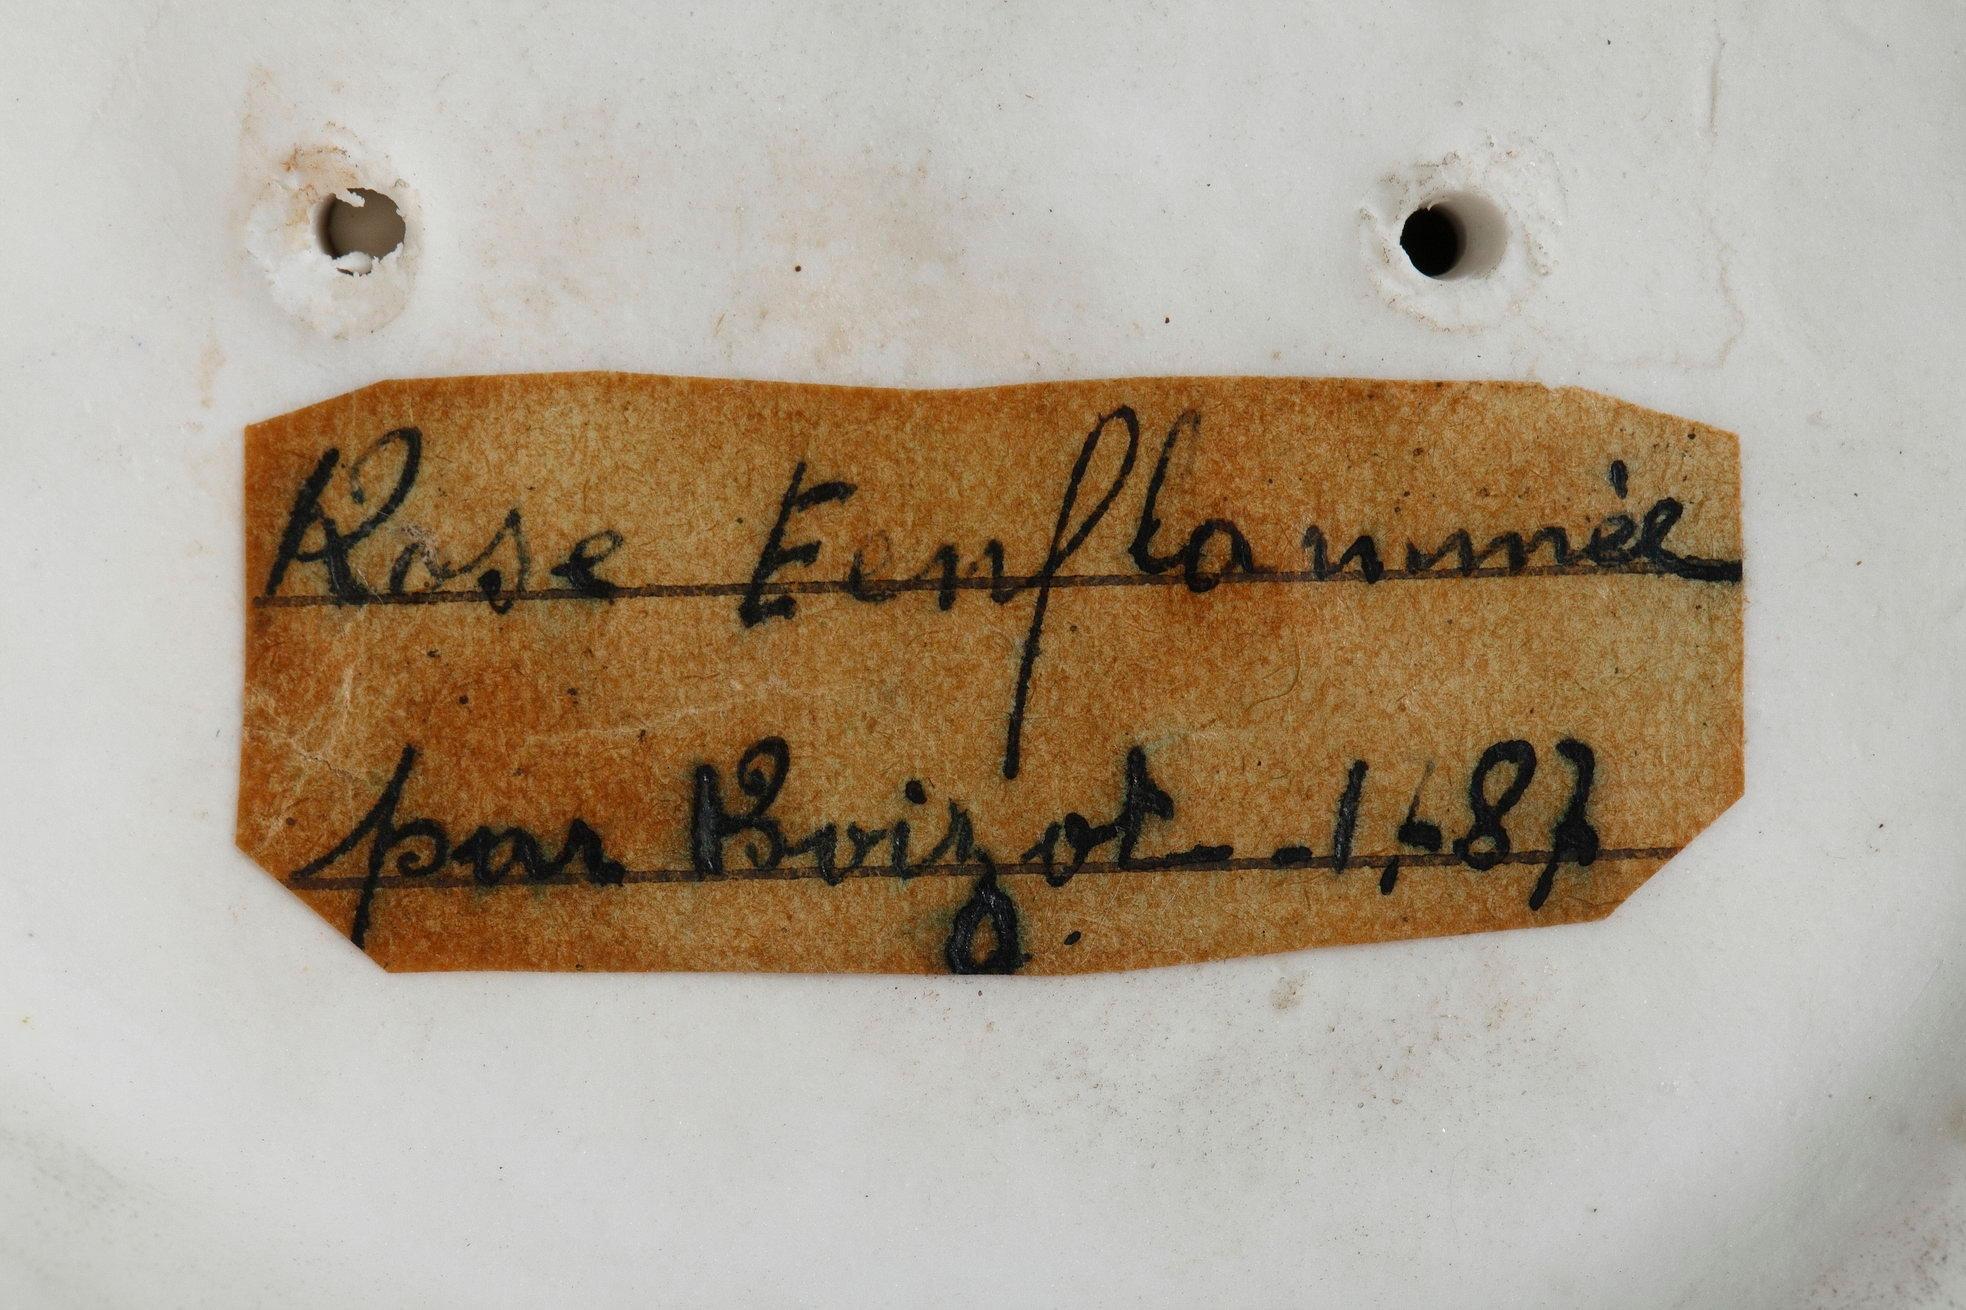 Rose Eenflammée
par Boizot - - 1787